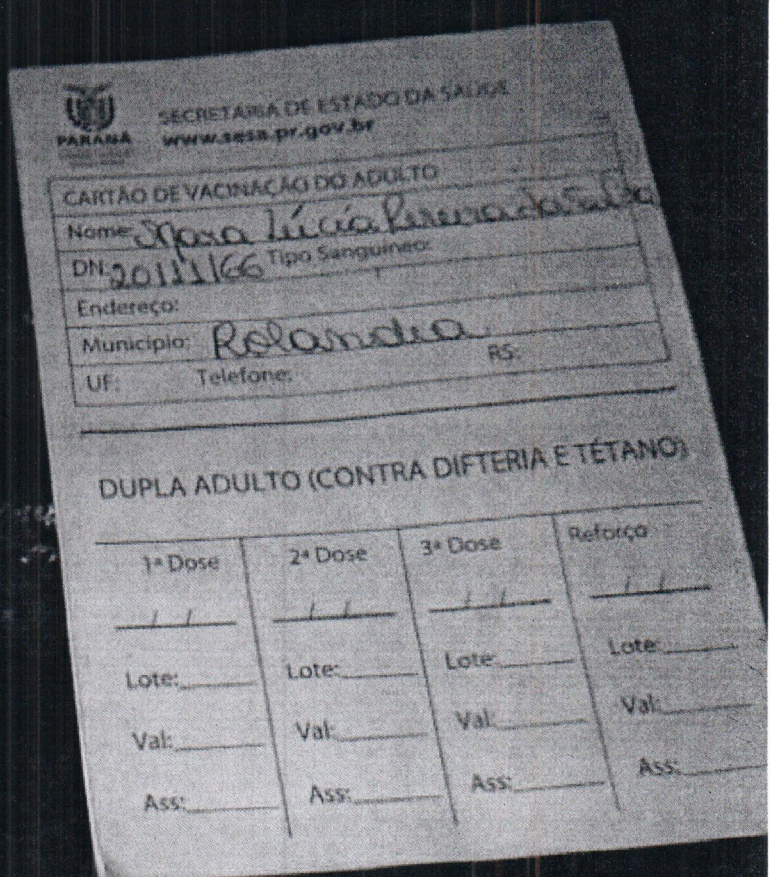 PARANÁ
SECRETARIA DE ESTADO DA SAÚDE
www.sesa.pr.gov.br
CARTÃO DE VACINAÇÃO DO ADULTO
Nome: Mara Lúcia Pereira da Silva
DN: 20/11/66 Tipo Sanguíneo:
Endereço:
Município: Rolandia
UF: Telefone: RS:
DUPLA ADULTO (CONTRA DIFTERIA E TÉTANO)
1ª Dose 2ª Dose 3ª Dose Reforço
__/__/__ __/__/__ __/__/__ __/__/__
Lote: Lote: Lote: Lote:
Val: Val: Val: Val:
Ass: Ass: Ass: Ass: